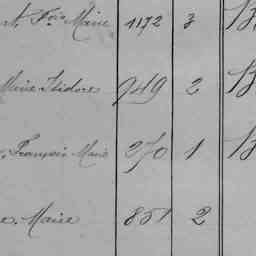 Marie 1172 3 B
Marie Isidore 749 2 B
François Marie 270 1 B
Marie 851 2